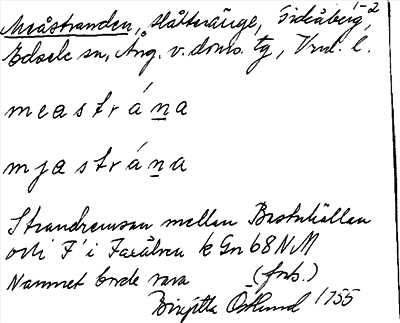 Meåstranden, slåtteränge, Fideåberg, 1-2
Edsele sn, Ång. v. doms. tg, Vnl. l.
meastrána
mjastrána
Strandremsan mellan
och i F' i Faxälven k Gn 68 NM
Namnet borde vara (forts.)
Birgitta Östlund 1955